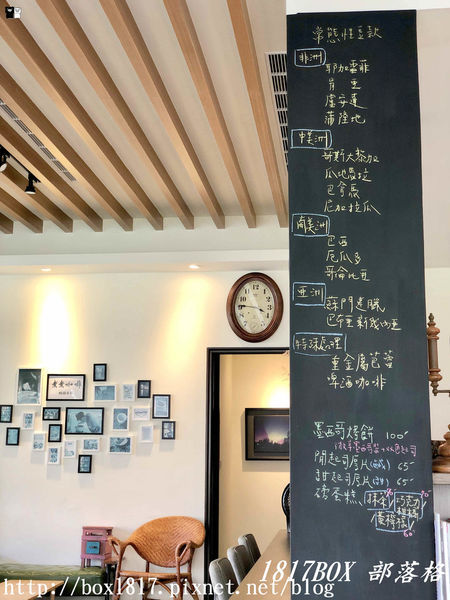 常態性豆款
非洲
耶加雪菲
肯亞
盧安達
蒲隆地
中美洲
哥斯大黎加
瓜地馬拉
巴拿馬
尼加拉瓜
南美洲
巴西
厄瓜多
哥倫比亞
亞洲
蘇門達臘
巴布亞新幾內亞
特殊處理
重金屬芭蕾
啤酒咖啡
墨西哥爆餅 100
開起司厚片(鹹) 65
甜起司厚片(甜) 65
磅蛋糕
抹茶
巧克力
檸檬
60
1817BOX 部落格
http://box1817.pixnet.net/blog